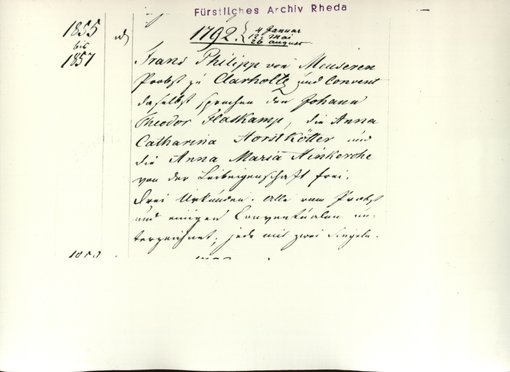 Fürstliches Archiv Rheda
1855 d) 1792. { 4 Januar
bis 12 Mai
1857 26 August
Franz Philipp von Meuseren
Probst zu Clarholtz und Convent
daselbst sprechen den Johann
Theodor Flaskamp, die Anna
Catharina Horstkötter und
die Anna Maria Hinkerohe
von der Leibeigenschaft frei.
Drei Urkunden. Alle vom Probst
und einigen Conventualen un-
terzeichnet; jede mit zwei Siegeln.